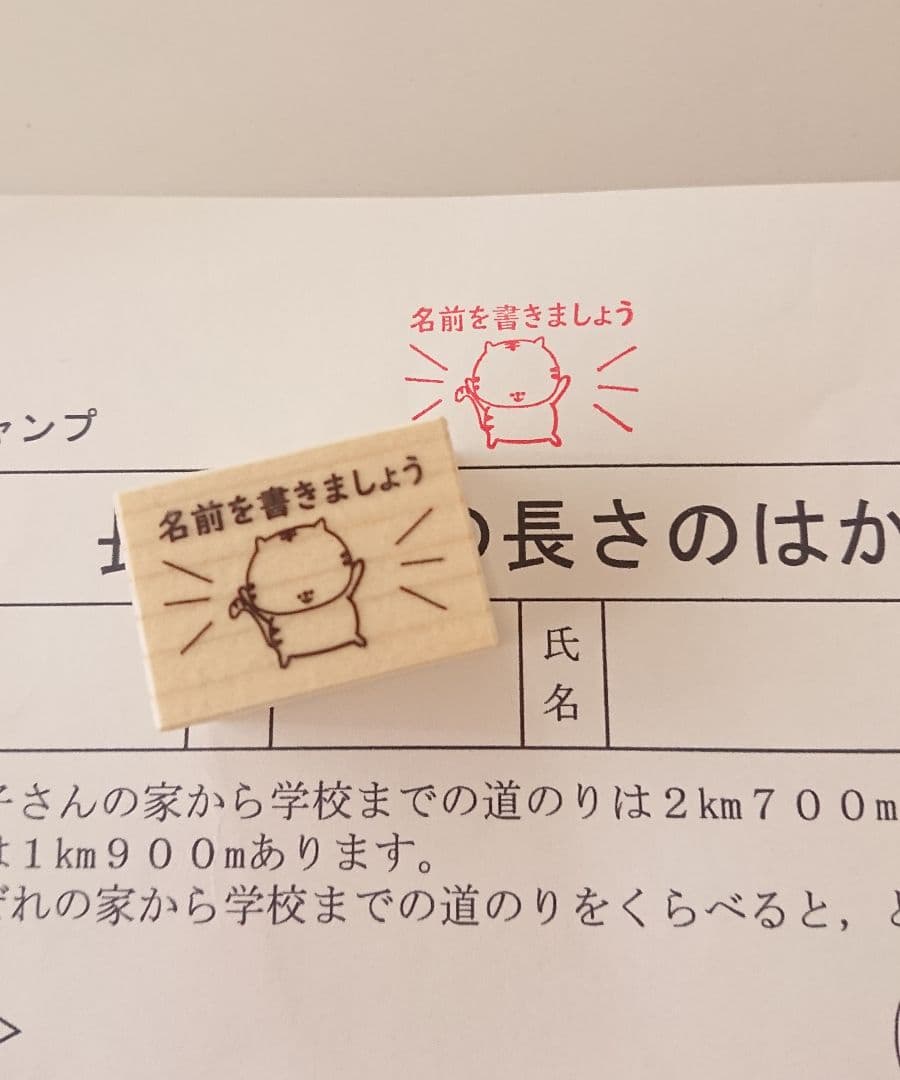 名前を書きましょう
ャンプ
名前を書きましょう
の長さのはか
氏
名
さんの家から学校までの道のりは2km700m
は1km900mあります。
ぞれの家から学校までの道のりをくらべると，